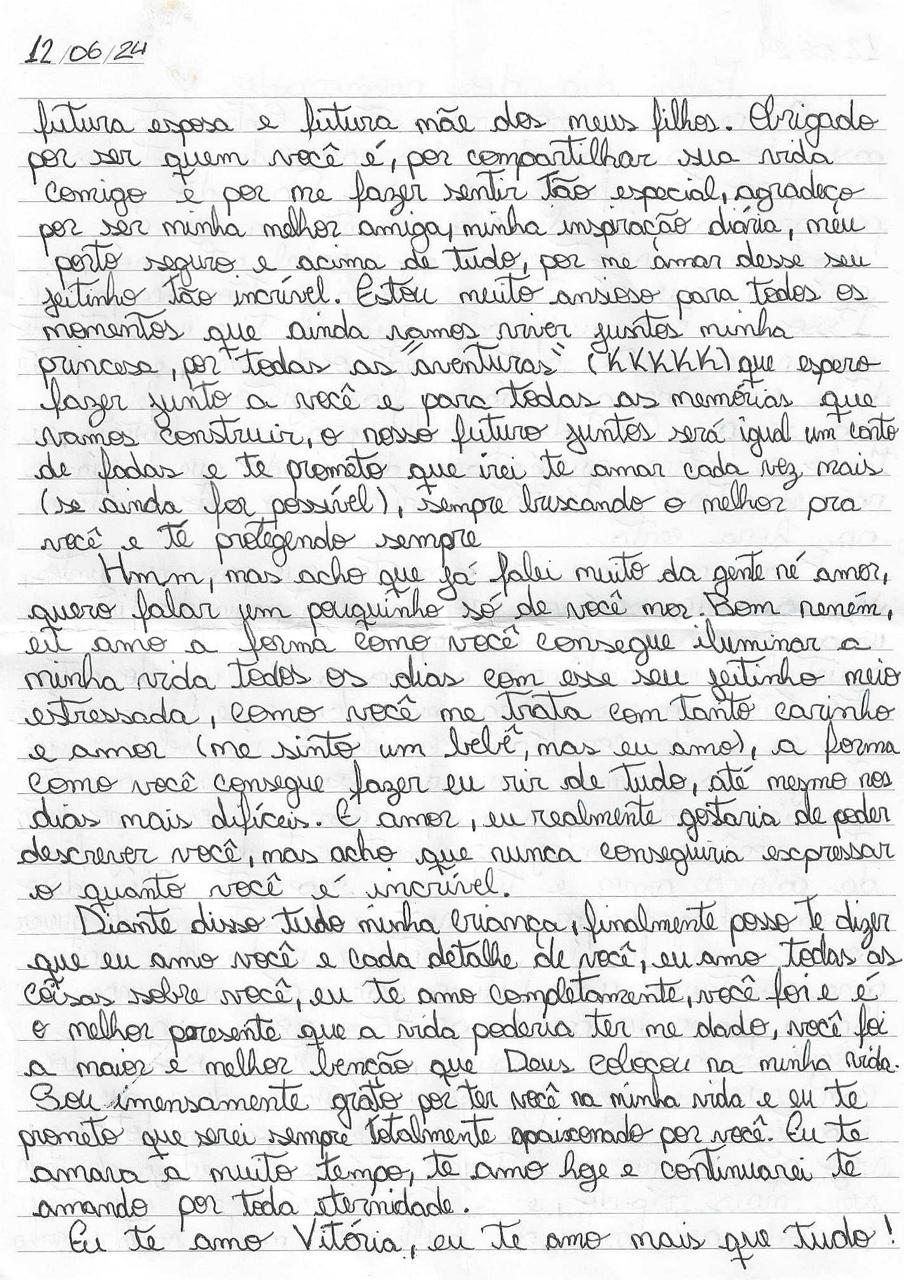 12/06/24
futura esposa e futura mãe dos meus filhos. Obrigado
por ser quem você é, por compartilhar sua vida
comigo é por me fazer sentir tão especial, agradeço
por ser minha melhor amiga, minha inspiração diária, meu
porto seguro e acima de tudo, por me amar desse seu
jeitinho tão incrível. Estou muito ansioso para todos os
momentos que ainda vamos viver juntos minha
princesa, por todas as "aventuras" (KKKKK) que espero
fazer junto a você e para todas as memórias que
vamos construir, o nosso futuro juntos será igual um conto
de fadas e te prometo que irei te amar cada vez mais
(se ainda for possível), sempre buscando o melhor pra
você e té protegendo sempre
Hmm, mas acho que já falei muito da gente né amor,
quero falar um pouquinho só de você mor. Bom neném,
eu amo a forma como você consegue iluminar a
minha vida todos os dias com esse seu jeitinho meio
estressada, como você me trata com tanto carinho
e amor (me sinto um bebê, mas eu amo), a forma
como você consegue fazer eu rir de tudo, até mesmo nos
dias mais difíceis. E amor, eu realmente gostaria de poder
descrever você, mas acho que nunca conseguiria escpressar
o quanto você é incrível.
Diante disso tudo minha criança, finalmente posso te dizer
que eu amo você e cada detalhe de você, eu amo todas as
coisas sobre você, eu te amo completamente, você foi e é
o melhor presente que a vida poderia ter me dado, você foi
a maior e melhor benção que Deus colocou na minha vida.
Sou imensamente grato por ter você na minha vida e eu te
prometo que serei sempre totalmente apaixonado por você. Eu te
amara a muito tempo, te amo hoje e continuarei te
amando por toda eternidade.
Eu te amo Vitória, eu te amo mais que tudo!